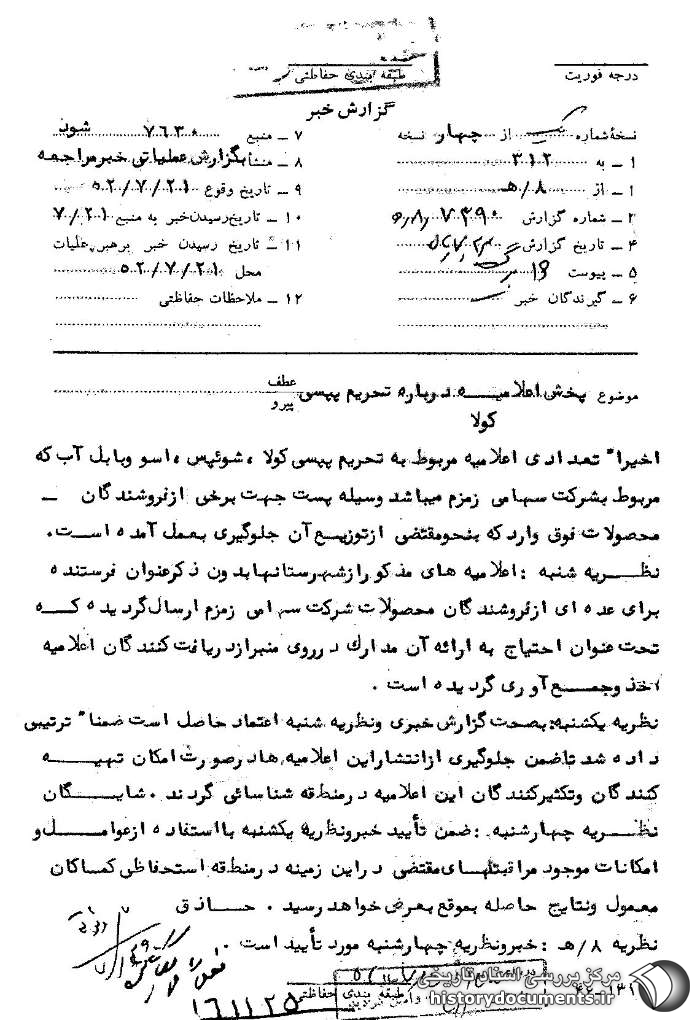 درجه فوریت
طبقه بندی حفاظتی
گزارش خبر
نسخهٔ شماره یک از چهار نسخه
۱ – به ۳۱۲
۱ – از ۸/هـ
۳ – شماره گزارش ۷۳۹۰/۸هـ
۴ – تاریخ گزارش
۵ – پیوست ۱۶ برگ
۶ – گیرندگان خبر
۷ – منبع ۷۶۳۰ شود
۸ – منشأ بگزارش عملیاتی خبر مراجعه
۹ – تاریخ وقوع ۵۲/۷/۲۱
۱۰ – تاریخ رسیدن خبر به منبع ۷/۲۱
۱۱ – تاریخ رسیدن خبر برهبر عملیات
محل ۵۲/۷/۲۱
۱۲ – ملاحظات حفاظتی
موضوع پخش اعلامیه درباره تحریم پپسی عطف
کولا پیرو
اخیرا" تعدادی اعلامیه مربوط به تحریم پپسی کولا ، شوئپس ، اسو وبابل آب که
مربوط بشرکت سهامی زمزم میباشد وسیله پست جهت برخی ازفروشندگان –
محصولات فوق وارد که بنحومقتضی ازتوزیع آن جلوگیری بعمل آمده است .
نظریه شنبه : اعلامیه های مذکور ازشهرستانها بدون ذکرعنوان فرستنده
برای عده ای ازفروشندگان محصولات شرکت سهامی زمزم ارسال گردیده که
تحت عنوان احتیاج به ارائه آن مدارک درروی منبر ازدریافت کنندگان اعلامیه
اخذ وجمع آوری گردیده است .
نظریه یکشنبه: بصحت گزارش خبری ونظریه شنبه اعتماد حاصل است ضمنا" ترتیبی
داده شد تاضمن جلوگیری ازانتشار این اعلامیه ها درصورت امکان تهیه
کنندگان وتکثیرکنندگان این اعلامیه درمنطقه شناسائی گردند . شایگان
نظریه چهارشنبه : ضمن تأیید خبرونظریه یکشنبه بااستفاده ازعوامل و
امکانات موجود مراقبتهای مقتضی دراین زمینه درمنطقه استحفاظی کماکان
معمول ونتایج حاصله بموقع بعرض خواهد رسید . حاذق
نظریه ۸/هـ : خبرونظریه چهارشنبه مورد تأیید است .
طبقه بندی حفاظتی
۱۶۱۱۲۵
مرکز بررسی اسناد تاریخی
historydocuments.ir